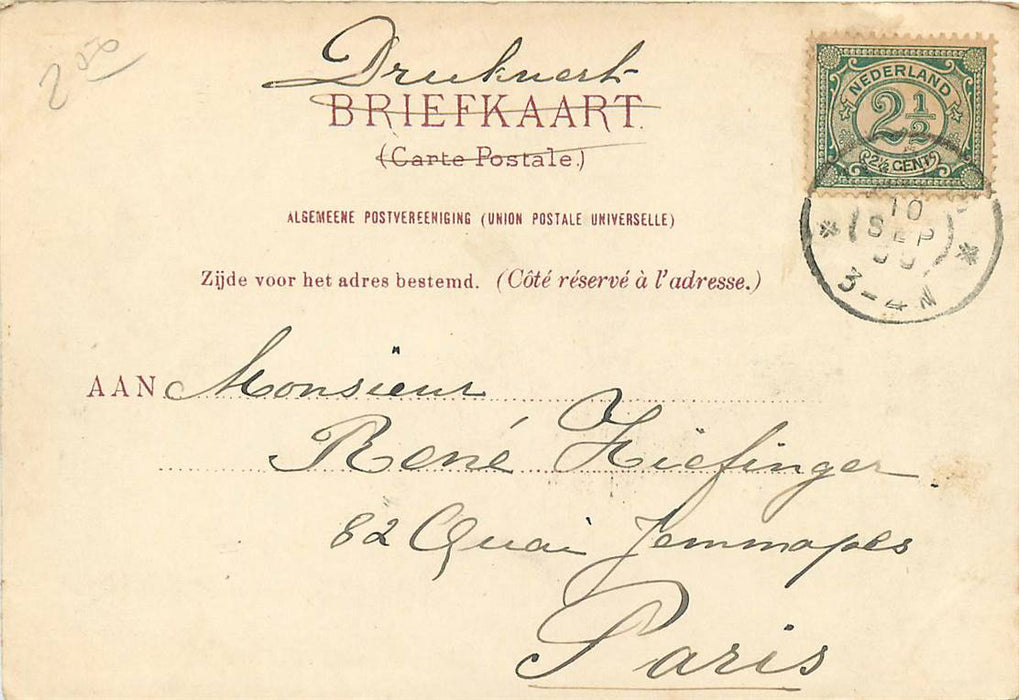 2 50
Drukwerk
BRIEFKAART.
(Carte Postale.)
ALGEMEENE POSTVEREENIGING (UNION POSTALE UNIVERSELLE)
Zijde voor het adres bestemd. (Côté réservé à l'adresse.)
NEDERLAND
2 1/2
2½ CENT
10
SEP
3-4 N
AAN Monsieur
René Kiefinger
82 Quai Jemmapes
Paris